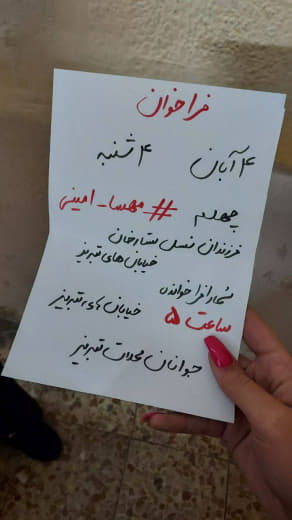 فراخوان
۴ آبان ۴ شنبه
چهلم #مهسا_امینی
فرزندان نسل ستارخان
خیابان های تبریز
شما را فرا خوانده
ساعت ۵ خیابان های تبریز
جوانان محلات تبریز